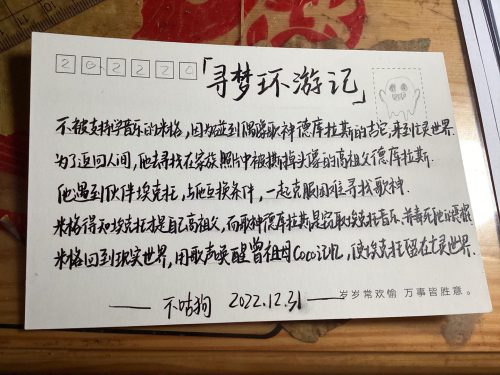 202220
「寻梦环游记」
不被支持学音乐的米格，因为碰到偶像歌神德库拉斯的吉它，来到亡灵世界.
为了返回人间，他去寻找在家族照片中被撕掉头像的高祖父德库拉斯.
他遇到伙伴埃克托，与他互换条件，一起克服困难寻找歌神.
米格得知埃克托才是自己高祖父，而歌神德库拉斯是窃取埃克托音乐、并毒死他的
米格回到现实世界，用歌声唤醒曾祖母Coco记忆，使埃克托留在亡灵世界.
—— 不咕狗 2022.12.31 ——
岁岁常欢愉 万事皆胜意。